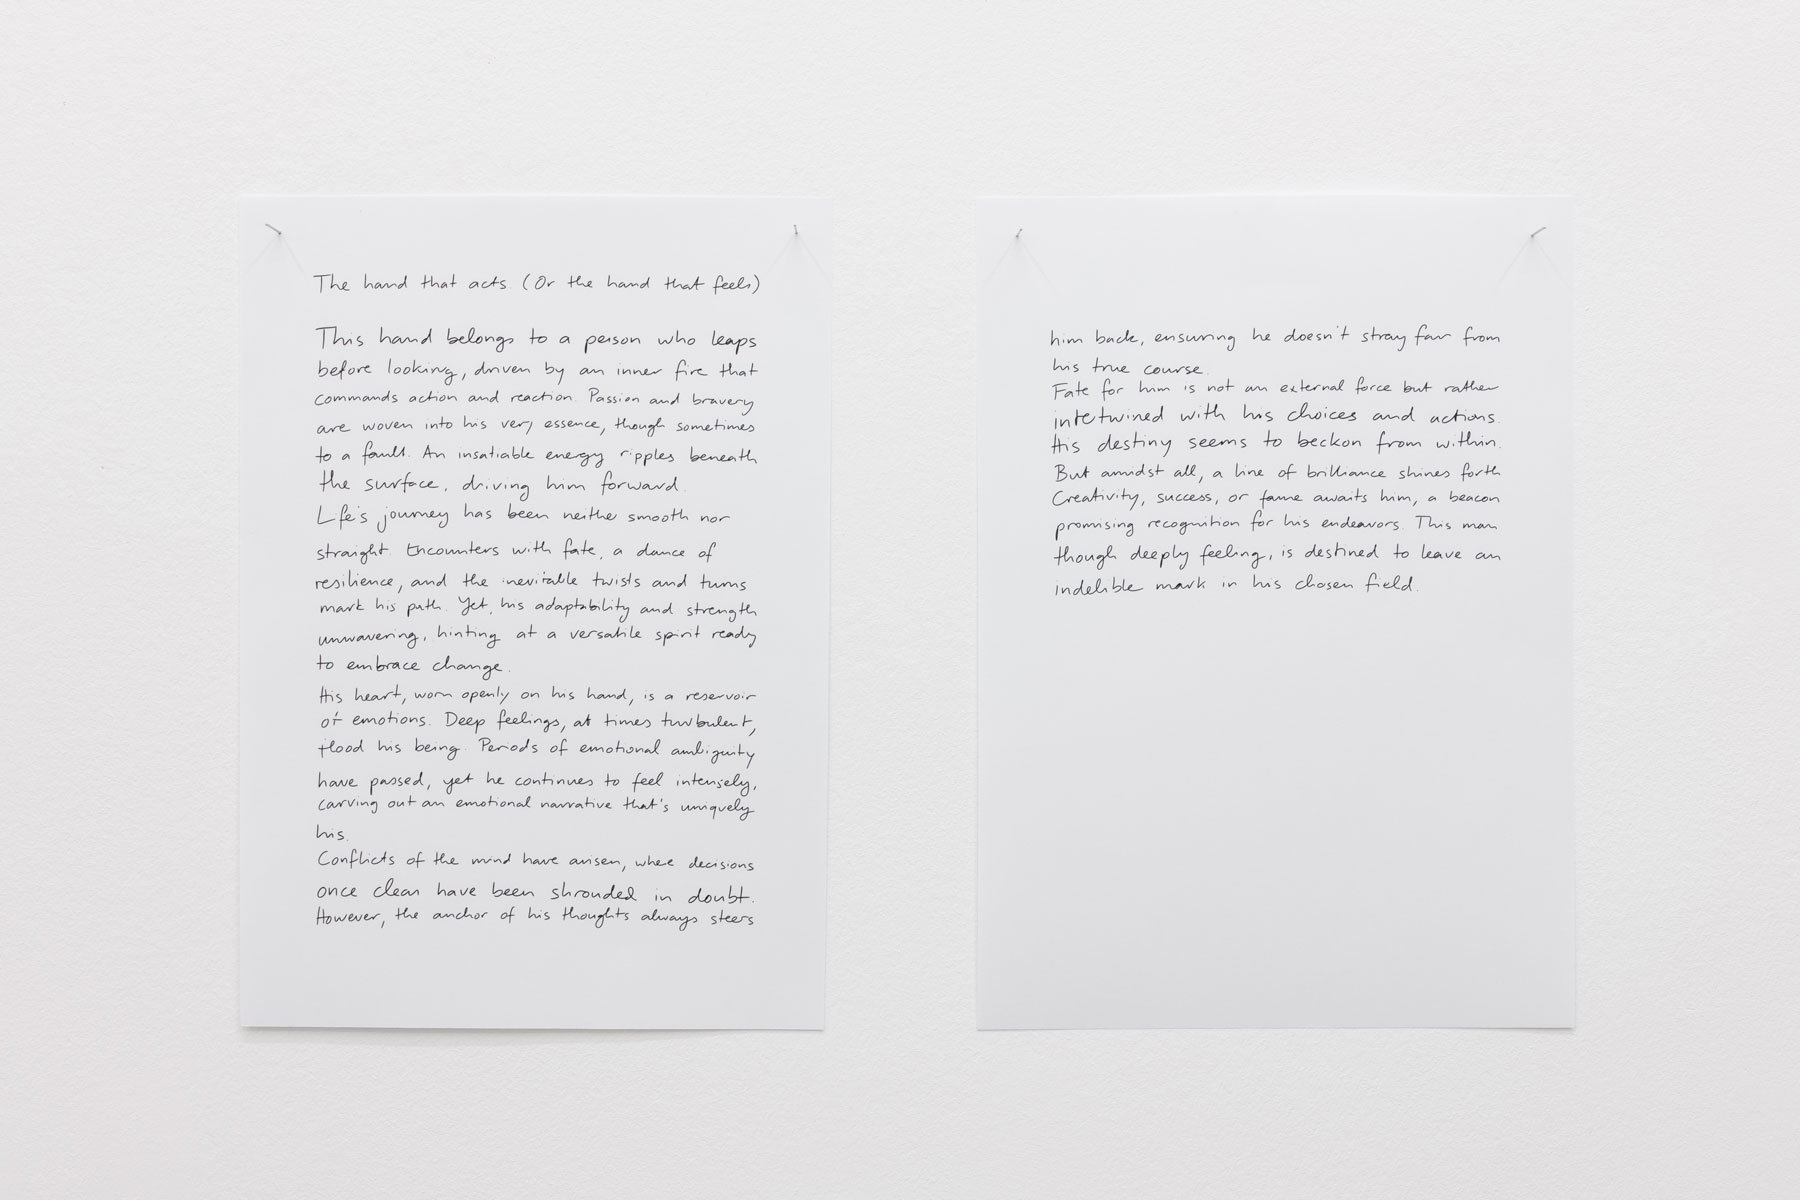 The hand that acts. (Or the hand that feels)
This hand belongs to a person who leaps
before looking, driven by an inner fire that
commands action and reaction. Passion and bravery
are woven into his very essence, though sometimes
to a fault. An insatiable energy ripples beneath
the surface, driving him forward.
Life's journey has been neither smooth nor
straight. Encounters with fate, a dance of
resilience, and the inevitable twists and turns
mark his path. Yet, his adaptability and strength
unwavering, hinting at a versatile spirit ready
to embrace change.
His heart, worn openly on his hand, is a reservoir
of emotions. Deep feelings, at times turbulent,
flood his being. Periods of emotional ambiguity
have passed, yet he continues to feel intensely,
carving out an emotional narrative that's uniquely
his.
Conflicts of the mind have arisen, where decisions
once clear have been shrouded in doubt.
However, the anchor of his thoughts always steers
him back, ensuring he doesn't stray far from
his true course.
Fate for him is not an external force but rather
intertwined with his choices and actions.
His destiny seems to beckon from within.
But amidst all, a line of brilliance shines forth
Creativity, success, or fame awaits him, a beacon
promising recognition for his endeavors. This man
though deeply feeling, is destined to leave an
indelible mark in his chosen field.